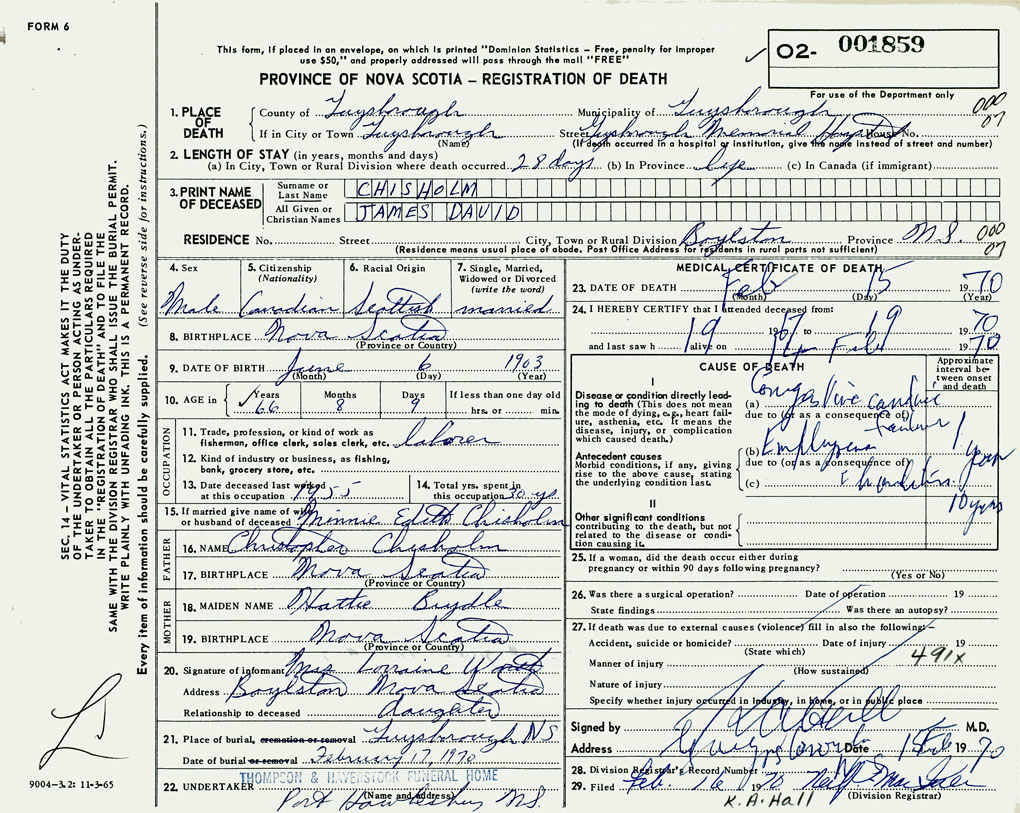 FORM 6
This form, if placed in an envelope, on which is printed "Dominion Statistics – Free, penalty for improper
use $50," and properly addressed will pass through the mail "FREE"
O2- 001859
PROVINCE OF NOVA SCOTIA – REGISTRATION OF DEATH
For use of the Department only
1. PLACE OF DEATH
County of Guysborough Municipality of Guysborough 000
If in City or Town Guysborough Street Guysborough Memorial Hospital House No. 07
(Name) (If death occurred in a hospital or institution, give the name instead of street and number)
2. LENGTH OF STAY (in years, months and days)
(a) In City, Town or Rural Division where death occurred 28 days (b) In Province life (c) In Canada (if immigrant)
3. PRINT NAME OF DECEASED
Surname or Last Name CHISHOLM
All Given or Christian Names JAMES DAVID
RESIDENCE No. Street City, Town or Rural Division Boylston Province N.S. 000
(Residence means usual place of abode. Post Office Address for residents in rural parts not sufficient) 07
4. Sex Male
5. Citizenship (Nationality) Canadian
6. Racial Origin Scottish
7. Single, Married, Widowed or Divorced (write the word) married
8. BIRTHPLACE Nova Scotia
(Province or Country)
9. DATE OF BIRTH June 6 1903
(Month) (Day) (Year)
10. AGE in Years 66 Months 8 Days 9 If less than one day old hrs. or min.
OCCUPATION
11. Trade, profession, or kind of work as
fisherman, office clerk, sales clerk, etc. laborer
12. Kind of industry or business, as fishing,
bank, grocery store, etc.
13. Date deceased last worked
at this occupation 1955
14. Total yrs. spent in
this occupation 30 yrs
15. If married give name of wife
or husband of deceased Minnie Edith Chisholm
FATHER
16. NAME Christopher Chisholm
17. BIRTHPLACE Nova Scotia
(Province or Country)
MOTHER
18. MAIDEN NAME Hattie
19. BIRTHPLACE Nova Scotia
(Province or Country)
20. Signature of informant Mrs Lorraine
Address Boylston Nova Scotia
Relationship to deceased daughter
21. Place of burial, cremation or removal Guysborough NS
Date of burial or removal February 17, 1970
THOMPSON & HAVERSTOCK FUNERAL HOME
22. UNDERTAKER Port Hawkesbury N.S.
(Name and address)
MEDICAL CERTIFICATE OF DEATH
23. DATE OF DEATH Feb 15 1970
(Month) (Day) (Year)
24. I HEREBY CERTIFY that I attended deceased from:
19 1967 to 19 1970
and last saw h alive on 14 Feb 1970
CAUSE OF DEATH
Approximate interval between onset and death
I
Disease or condition directly leading
to death (This does not mean
the mode of dying, e.g., heart failure,
asthenia, etc. It means the
disease, injury, or complication
which caused death.)
(a) Congestive cardiac failure
due to (or as a consequence of)
Antecedent causes
Morbid conditions, if any, giving
rise to the above cause, stating
the underlying condition last.
(b) 1 year
due to (or as a consequence of)
(c) 10 years
II
Other significant conditions
contributing to the death, but not
related to the disease or condition
causing it.
25. If a woman, did the death occur either during
pregnancy or within 90 days following pregnancy?
(Yes or No)
26. Was there a surgical operation? Date of operation 19
State findings Was there an autopsy?
27. If death was due to external causes (violence) fill in also the following:–
Accident, suicide or homicide? Date of injury 19
(State which) 491X
Manner of injury
(How sustained)
Nature of injury
Specify whether injury occurred in industry, in home, or in public place
Signed by M.D.
Address Guysborough Date 15 Feb 1970
28. Division Registrar's Record Number
29. Filed Feb. 16 1970
K. A. Hall (Division Registrar)
SEC. 14 – VITAL STATISTICS ACT MAKES IT THE DUTY
OF THE UNDERTAKER OR PERSON ACTING AS UNDERTAKER
TO OBTAIN ALL THE PARTICULARS REQUIRED
IN THE "REGISTRATION OF DEATH" AND TO FILE THE
SAME WITH THE DIVISION REGISTRAR WHO SHALL ISSUE THE BURIAL PERMIT.
WRITE PLAINLY WITH UNFADING INK. THIS IS A PERMANENT RECORD.
Every item of information should be carefully supplied. (See reverse side for instructions.)
9004–3.2: 11-3-65